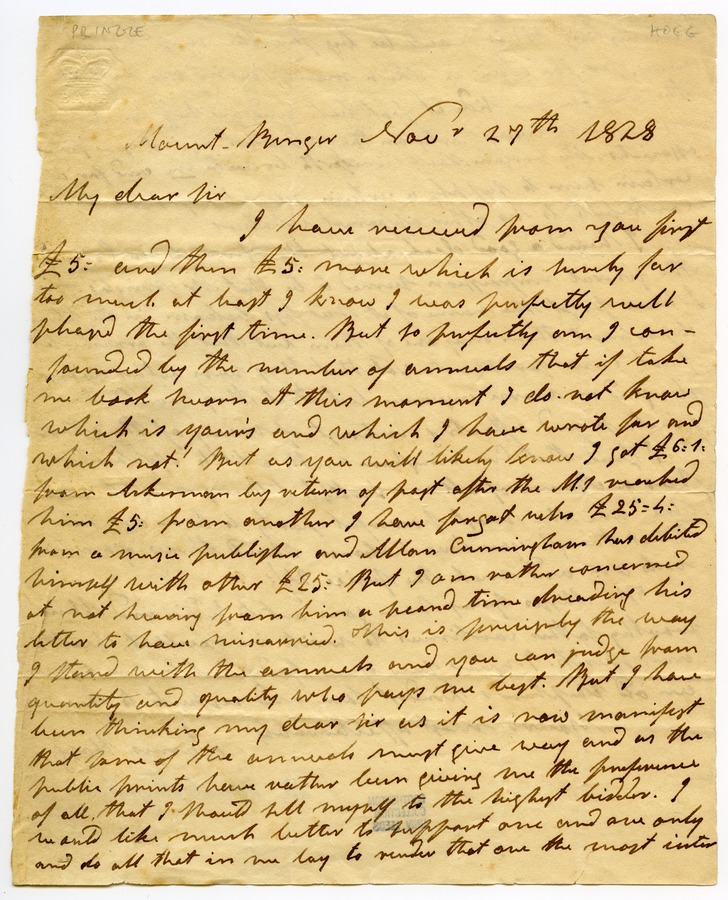 PRINGLE HOGG
Mount-Benger Novr 27th 1828
My dear Sir
I have received from you first
£5: and then £5: more which is surely far
too much at least I know I was perfectly well
pleased the first time. But so perfectly am I con-
founded by the number of annuals that if take
me book sworn at this moment I do not know
which is your's and which I have wrote for and
which not! But as you will likely know I got £6:1:
from Ackerman by return of post after the M.S reached
him £5: from another I have forgot who £25:4:
from a music publisher and Allan Cunningham has debited
himself with other £25: But I am rather concerned
at not hearing from him a second time dreading his
letter to have miscarried. This is precisely the way
I stand with the annuals and you can judge from
quantity and quality who pays me best. But I have
been thinking my dear Sir as it is now manifest
that some of the annuals must give way and as the
public prints have rather been giving me the preference
of all, that I should sell myself to the highest bidder. I
would like much better to support one and one only
and do all that in me lay to render that one the most inter